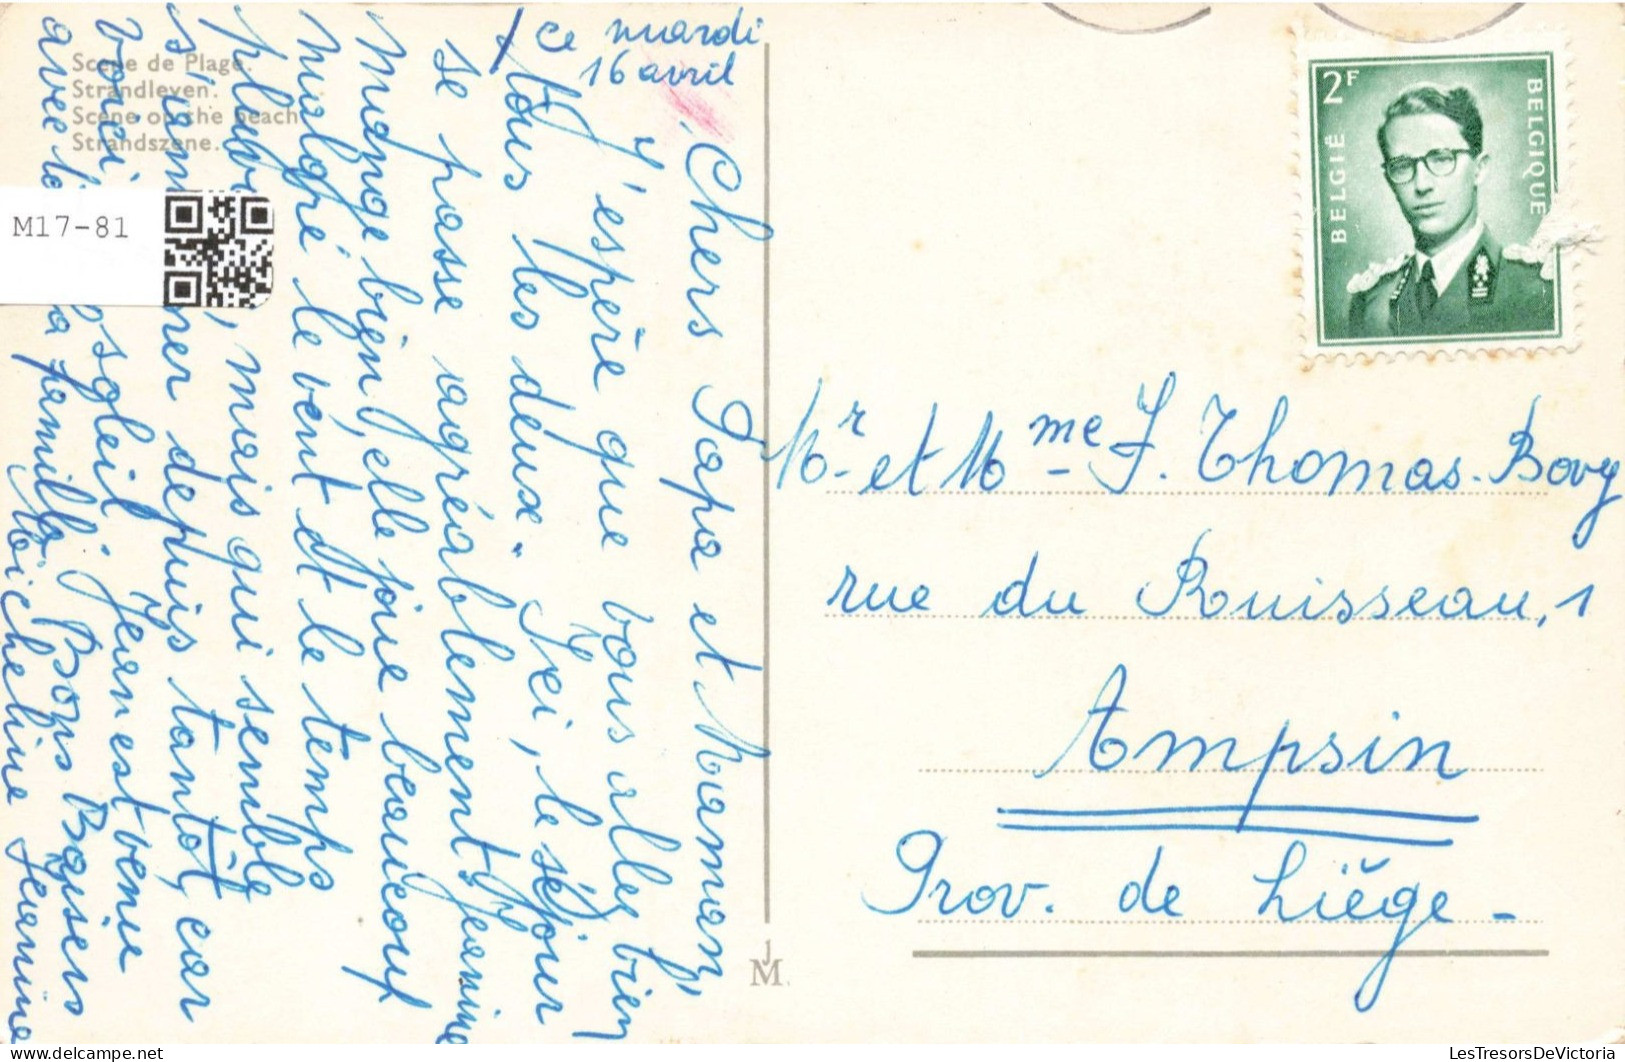 Scène de Plage.
Strandleven.
Scene on the beach
Strandszene.
M17-81
ce mardi
16 avril
Chers Papa et Maman
J'espère que vous allez bien
tous les deux. Ici, le séjour
se passe agréablement. Jeannine
mange bien, elle joue beaucoup
malgré le vent et le temps
mais qui semble
depuis tantôt, car
voici soleil. Jean est venu
avec famille. Bons Baisers
Micheline Jeannine
BELGIË 2F BELGIQUE
Mr. et Mme J. Thomas-Bovy
rue du Ruisseau, 1
Ampsin
Prov. de Liège -
JM.
LesTresorsDeVictoria
www.delcampe.net